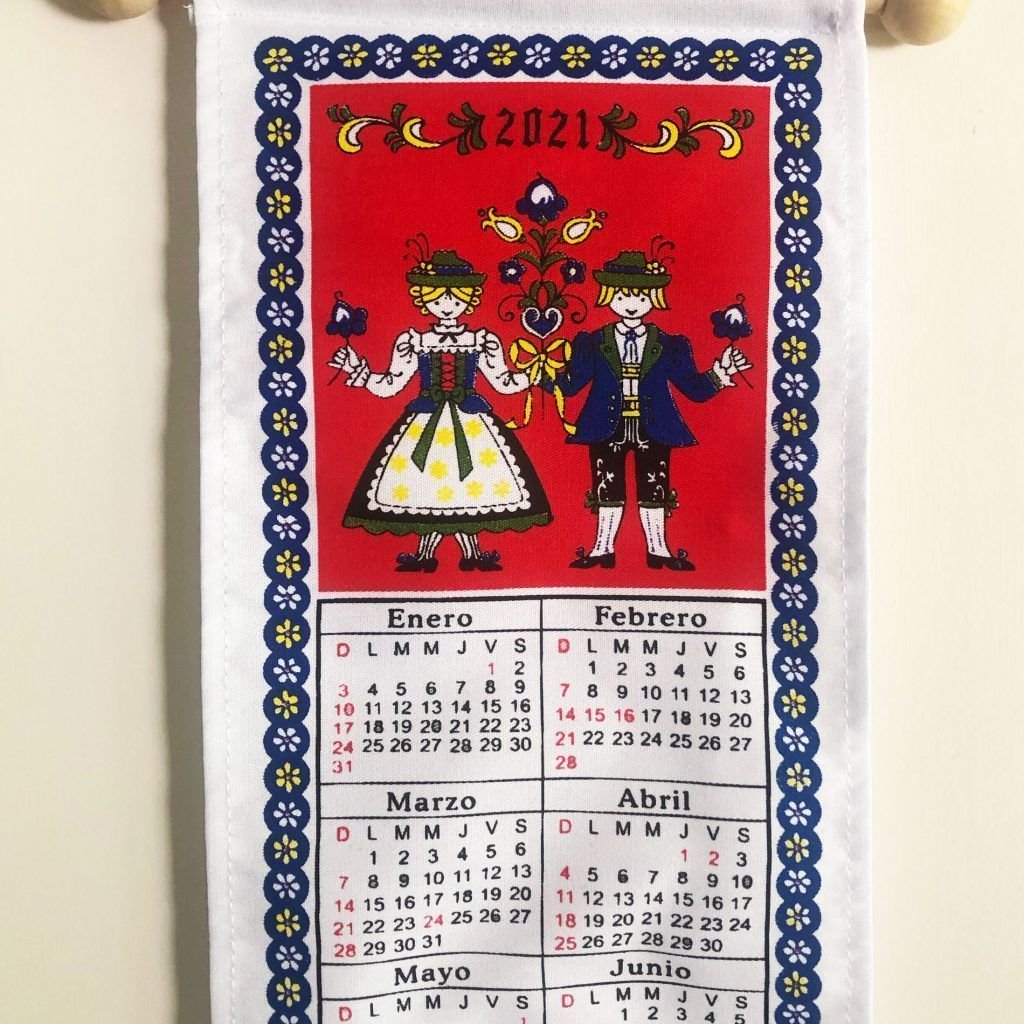 2021
Enero Febrero
D L M M J V S D L M M J V S
1 2 1 2 3 4 5 6
3 4 5 6 7 8 9 7 8 9 10 11 12 13
10 11 12 13 14 15 16 14 15 16 17 18 19 20
17 18 19 20 21 22 23 21 22 23 24 25 26 27
24 25 26 27 28 29 30 28
31
Marzo Abril
D L M M J V S D L M M J V S
1 2 3 4 5 6 1 2 3
7 8 9 10 11 12 13 4 5 6 7 8 9 10
14 15 16 17 18 19 20 11 12 13 14 15 16 17
21 22 23 24 25 26 27 18 19 20 21 22 23 24
28 29 30 31 25 26 27 28 29 30
Mayo Junio
D L M M J V S D L M M J V S
1 1 2 3 4 5